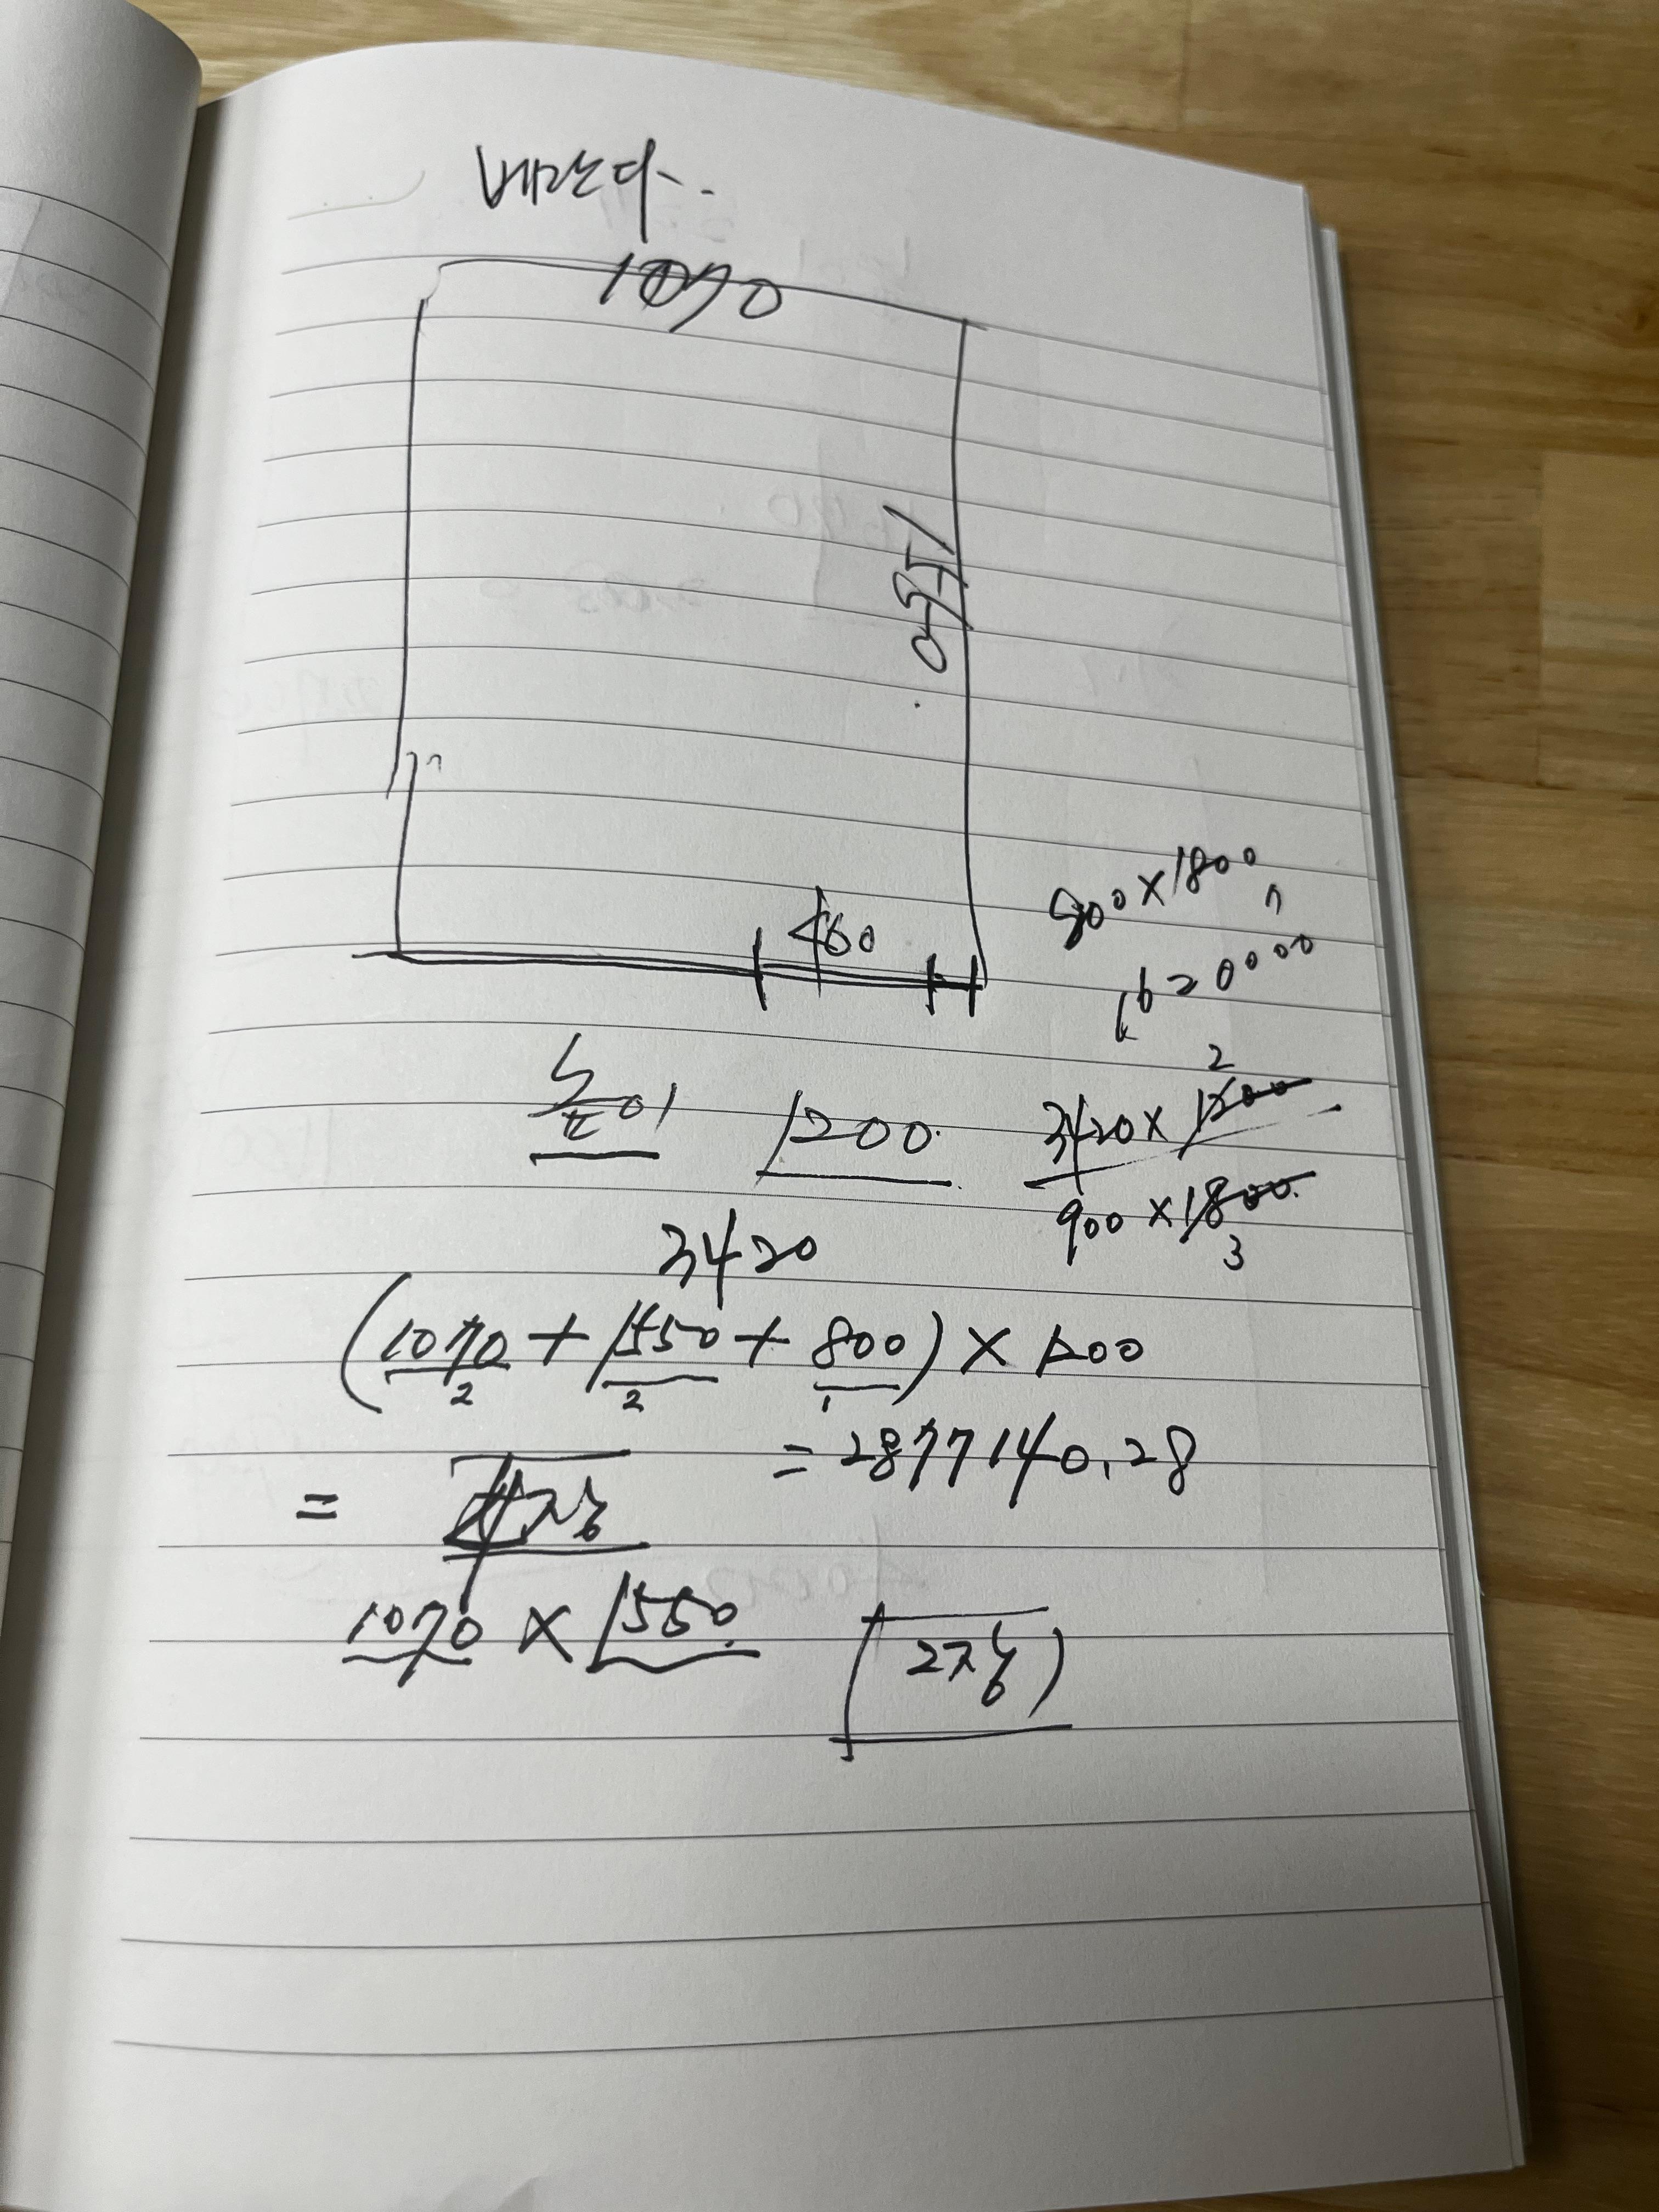 베란다.
1070
1550
460
900×1800
1620000
높이 1200.
2
3420×1200
900×1800.
3
3420
(1070+1550+800)×1200
2 2 1
=2877140.28
= 장
1070×1550
2장